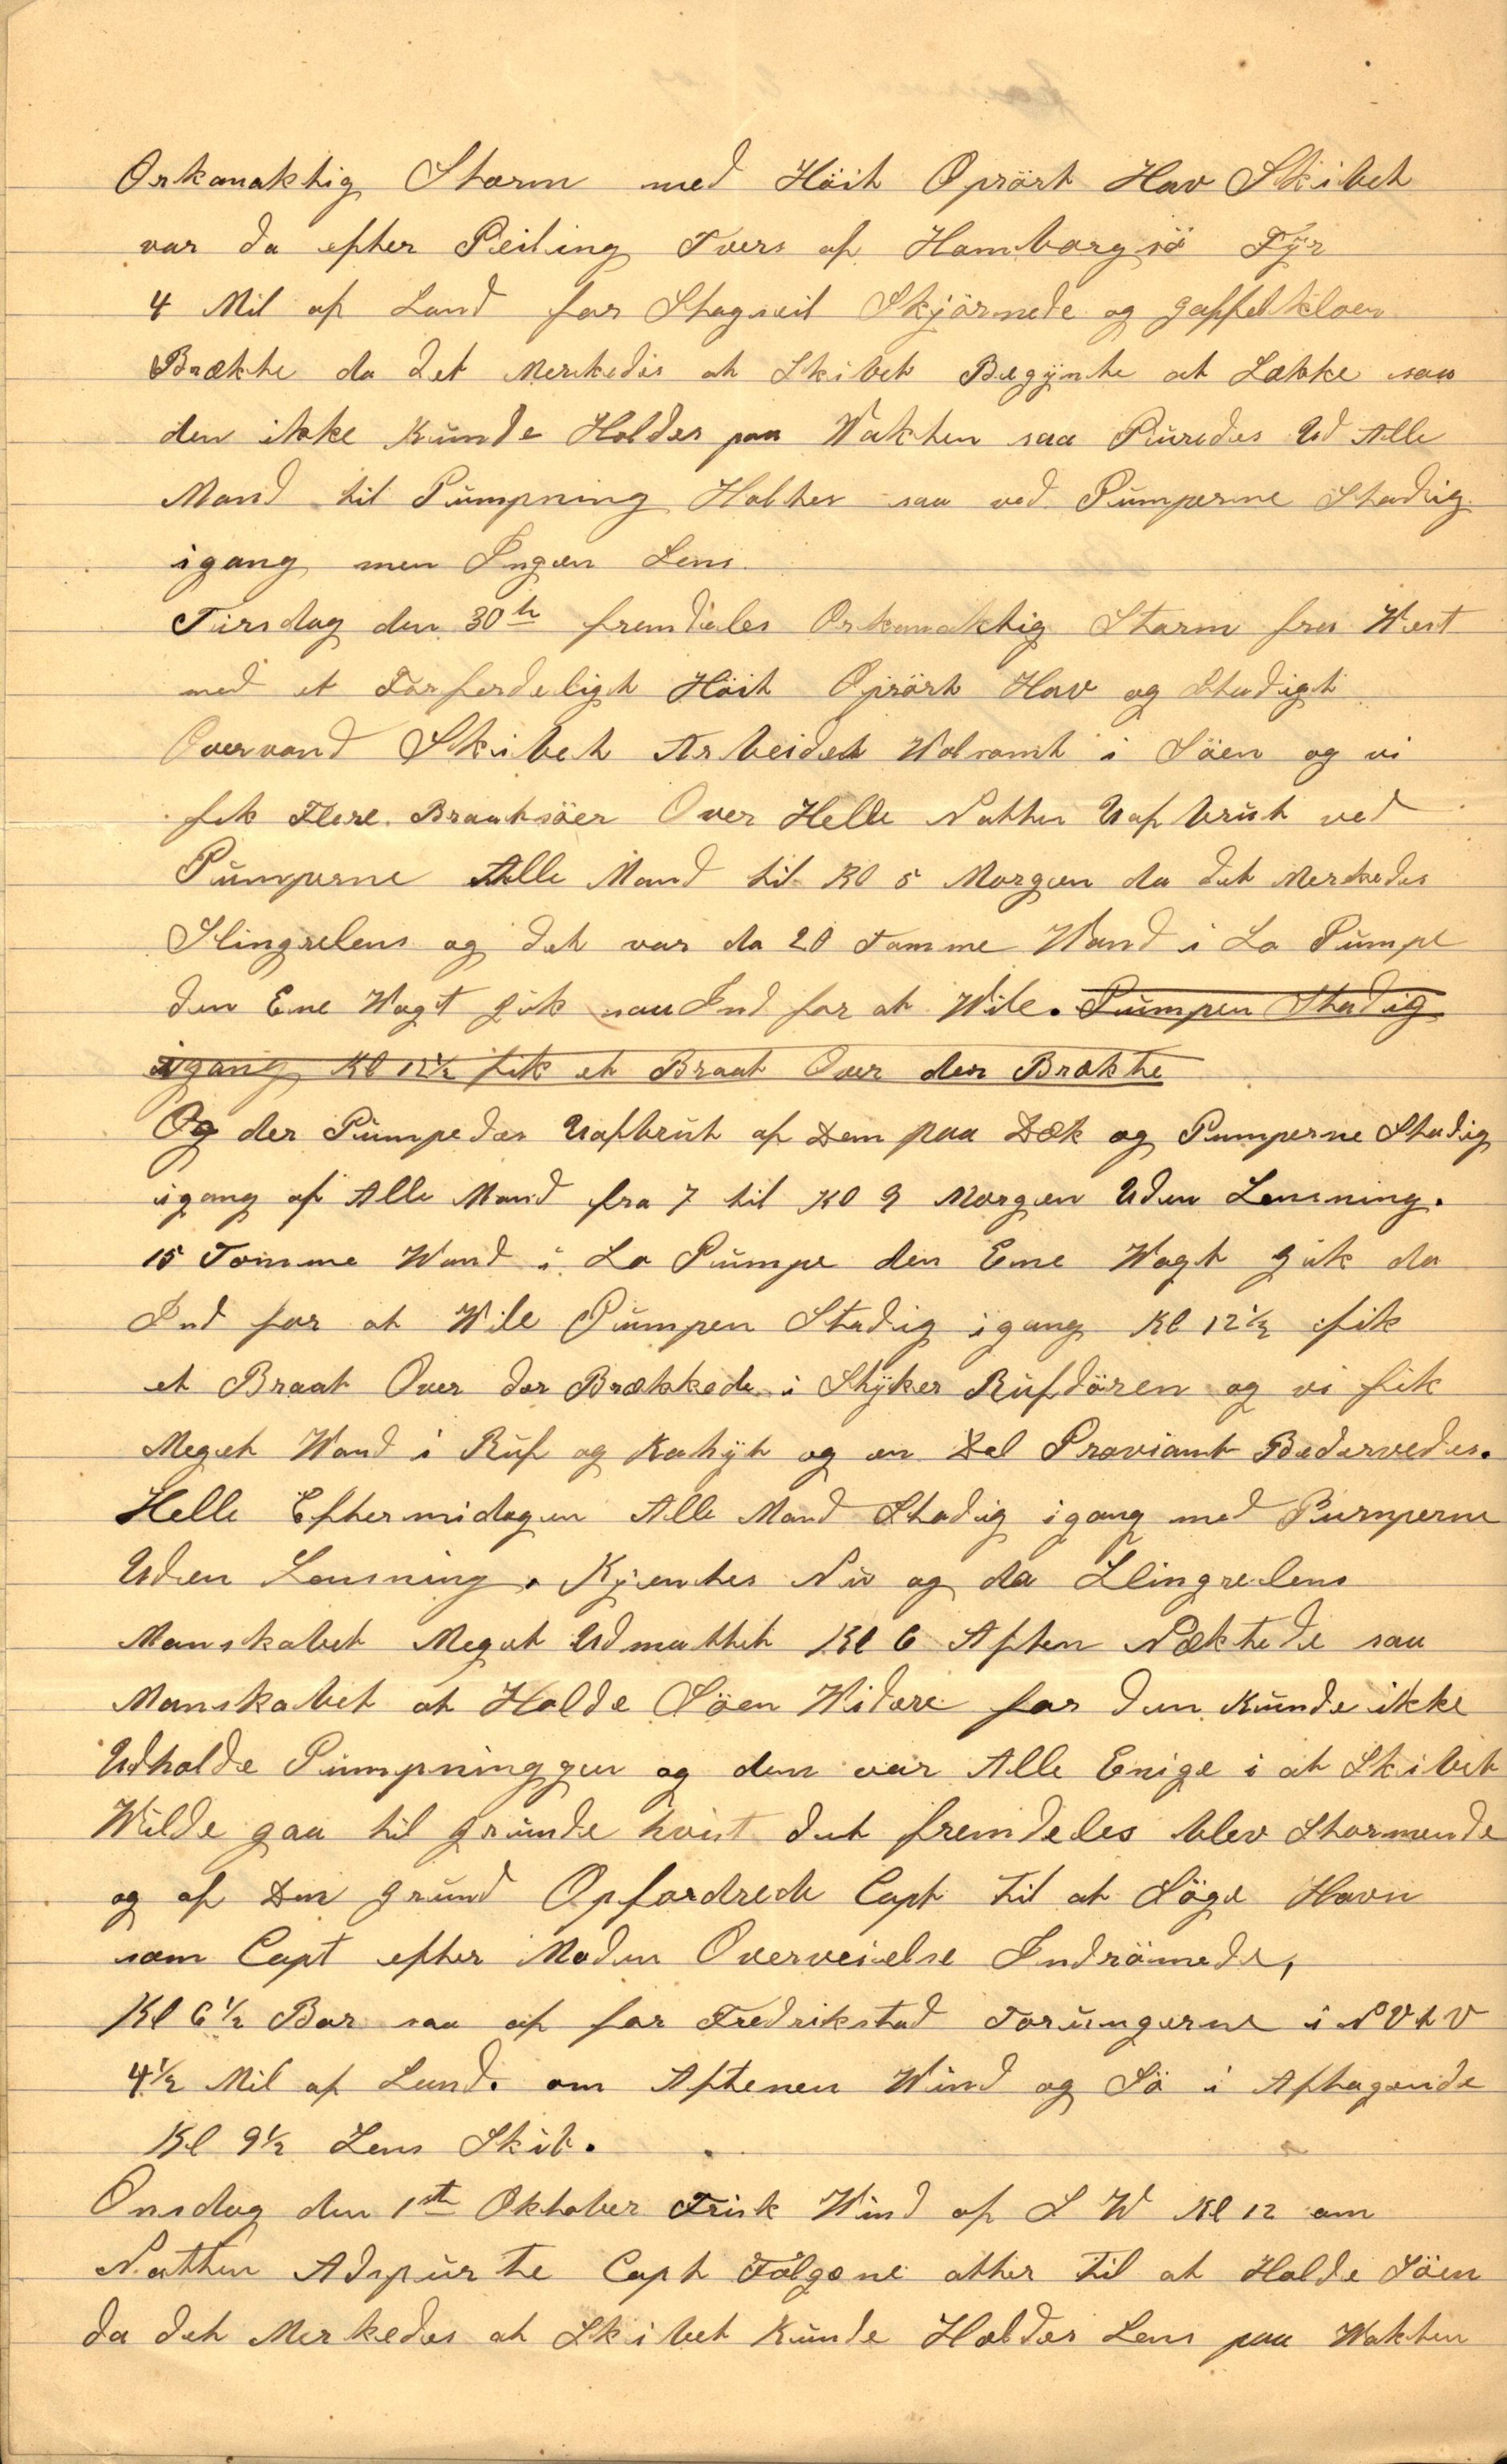 Orkanaktig Storm med Höit Oprört Hav Skibet
var da efter Peiling Tvers af Hamborgsö Fÿr
4 Mil af Land for Stagseil Skjörnede og gaffelkloen
Brækte da det Merkedes at Skibet Begÿnte at Lække saa
den ikke Kunde Holdes paa Wakten saa Puredes Ud Alle
Mand til Pumpning Holtes saa ved Pumperne Stadig
igang men Ingen Lens.
Tirsdag den 30te fremdeles Orkanaktig Storm fra West
med et Forferdeligt Höit Oprört Hav og Stadigt
Overvand Skibet Arbeidet Wolsomt i Söen og vi
fik Flere Braatsöer Over Helle Natten Uafbrut ved
Pumperne Alle Mand til Kl 5 Morgen da det Merkedes
Slingrelens og det var da 20 Tomme Wand i La Pumpe
den Ene Wagt gik saa Ind for at Wile. Pumpen Stadig
igang Kl 12½ fik et Braat Over der Brækte
Og der Pumpedes Uafbrut af Dem paa Dæk og Pumperne Stadig
igang af Alle Mand fra 7 til Kl 9 Morgen Uden Lensning.
15 Tomme Wand i La Pumpe den Ene Wagt gik da
Ind for at Wile Pumpen Stadig igang Kl 12½ fik
et Braat Over der Brækkede i Stÿker Rufdören og vi fik
Meget Wand i Ruf og Kahÿt og en Del Proviant Bedervedes.
Helle Eftermidagen Alle Mand Stadig igang med Pumperne
Uden Lensning. Kjentes Nu og da Slingrelens
Manskabet Meget Udmattet Kl 6 Aften Nektede saa
Manskabet at Holde Söen Widere for den Kunde ikke
Udholde Pumpninggen og den var Alle Enige i at Skibet
Wilde gaa til grunde hvist det fremdeles blev Stormende
og af Den grund Opfordrede Capt til at Söge Havn
som Capt efter Moden Overveielse Indrömede,
Kl 6½ Bar saa af for Fredrikstad Torungerne i NVtV
4½ Mil af Land. om Aftenen Wind og Sö i Aftagende
Kl 9½ Lens Skib.
Onsdag den 1ste Oktober Frisk Wind af S W Kl 12 om
Natten Adspurte Capt Fölgene atter til at Holde Söen
da det Merkedes at Skibet Kunde Holdes Lens paa Wakten